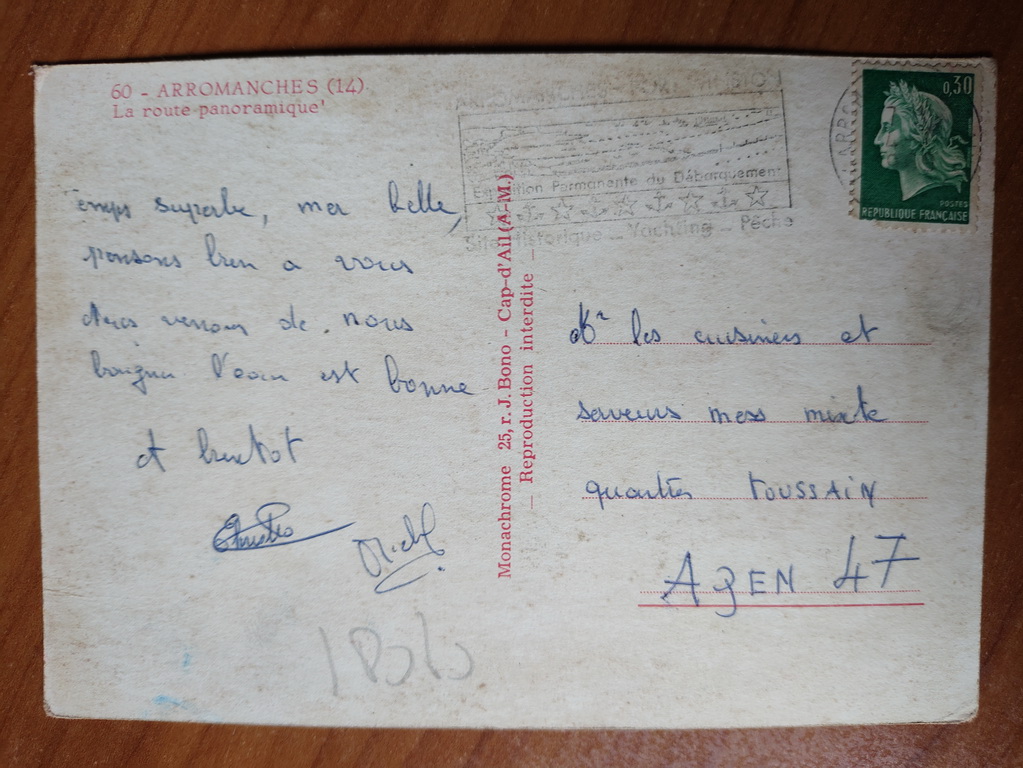 60 - ARROMANCHES (14)
La route panoramique
Exposition Permanente du Débarquement
Site Historique _ Yachting _ Pêche
0,30
POSTES
REPUBLIQUE FRANÇAISE
temps superbe, mer belle,
pensons bien a vous
venons de nous
baigner l'eau est bonne
A bientot
Michel
Monachrome 25, r. J. Bono - Cap-d'Ail (A-M.)
— Reproduction interdite —
les cuisiniers et
serveurs mess mixte
quartier TOUSSAIN
AGEN 47